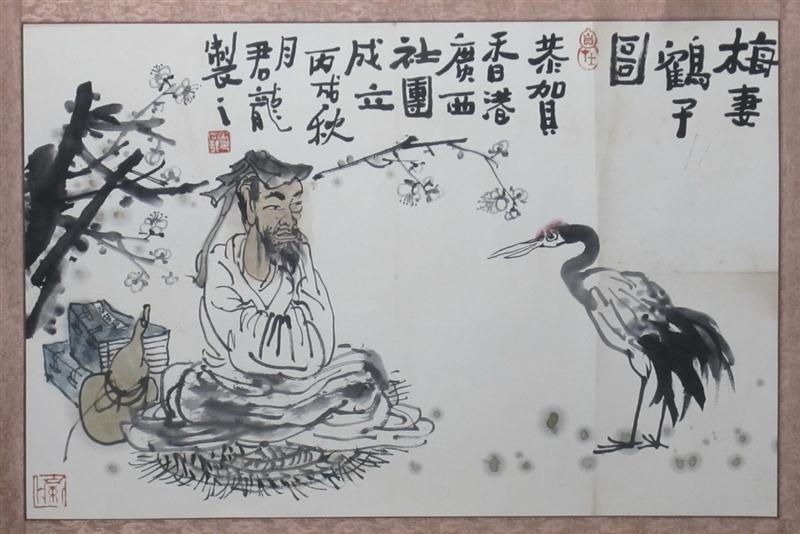 梅妻
鶴子
圖
恭賀
香港
廣西
社團
成立
丙戌秋
月
君龍
製之